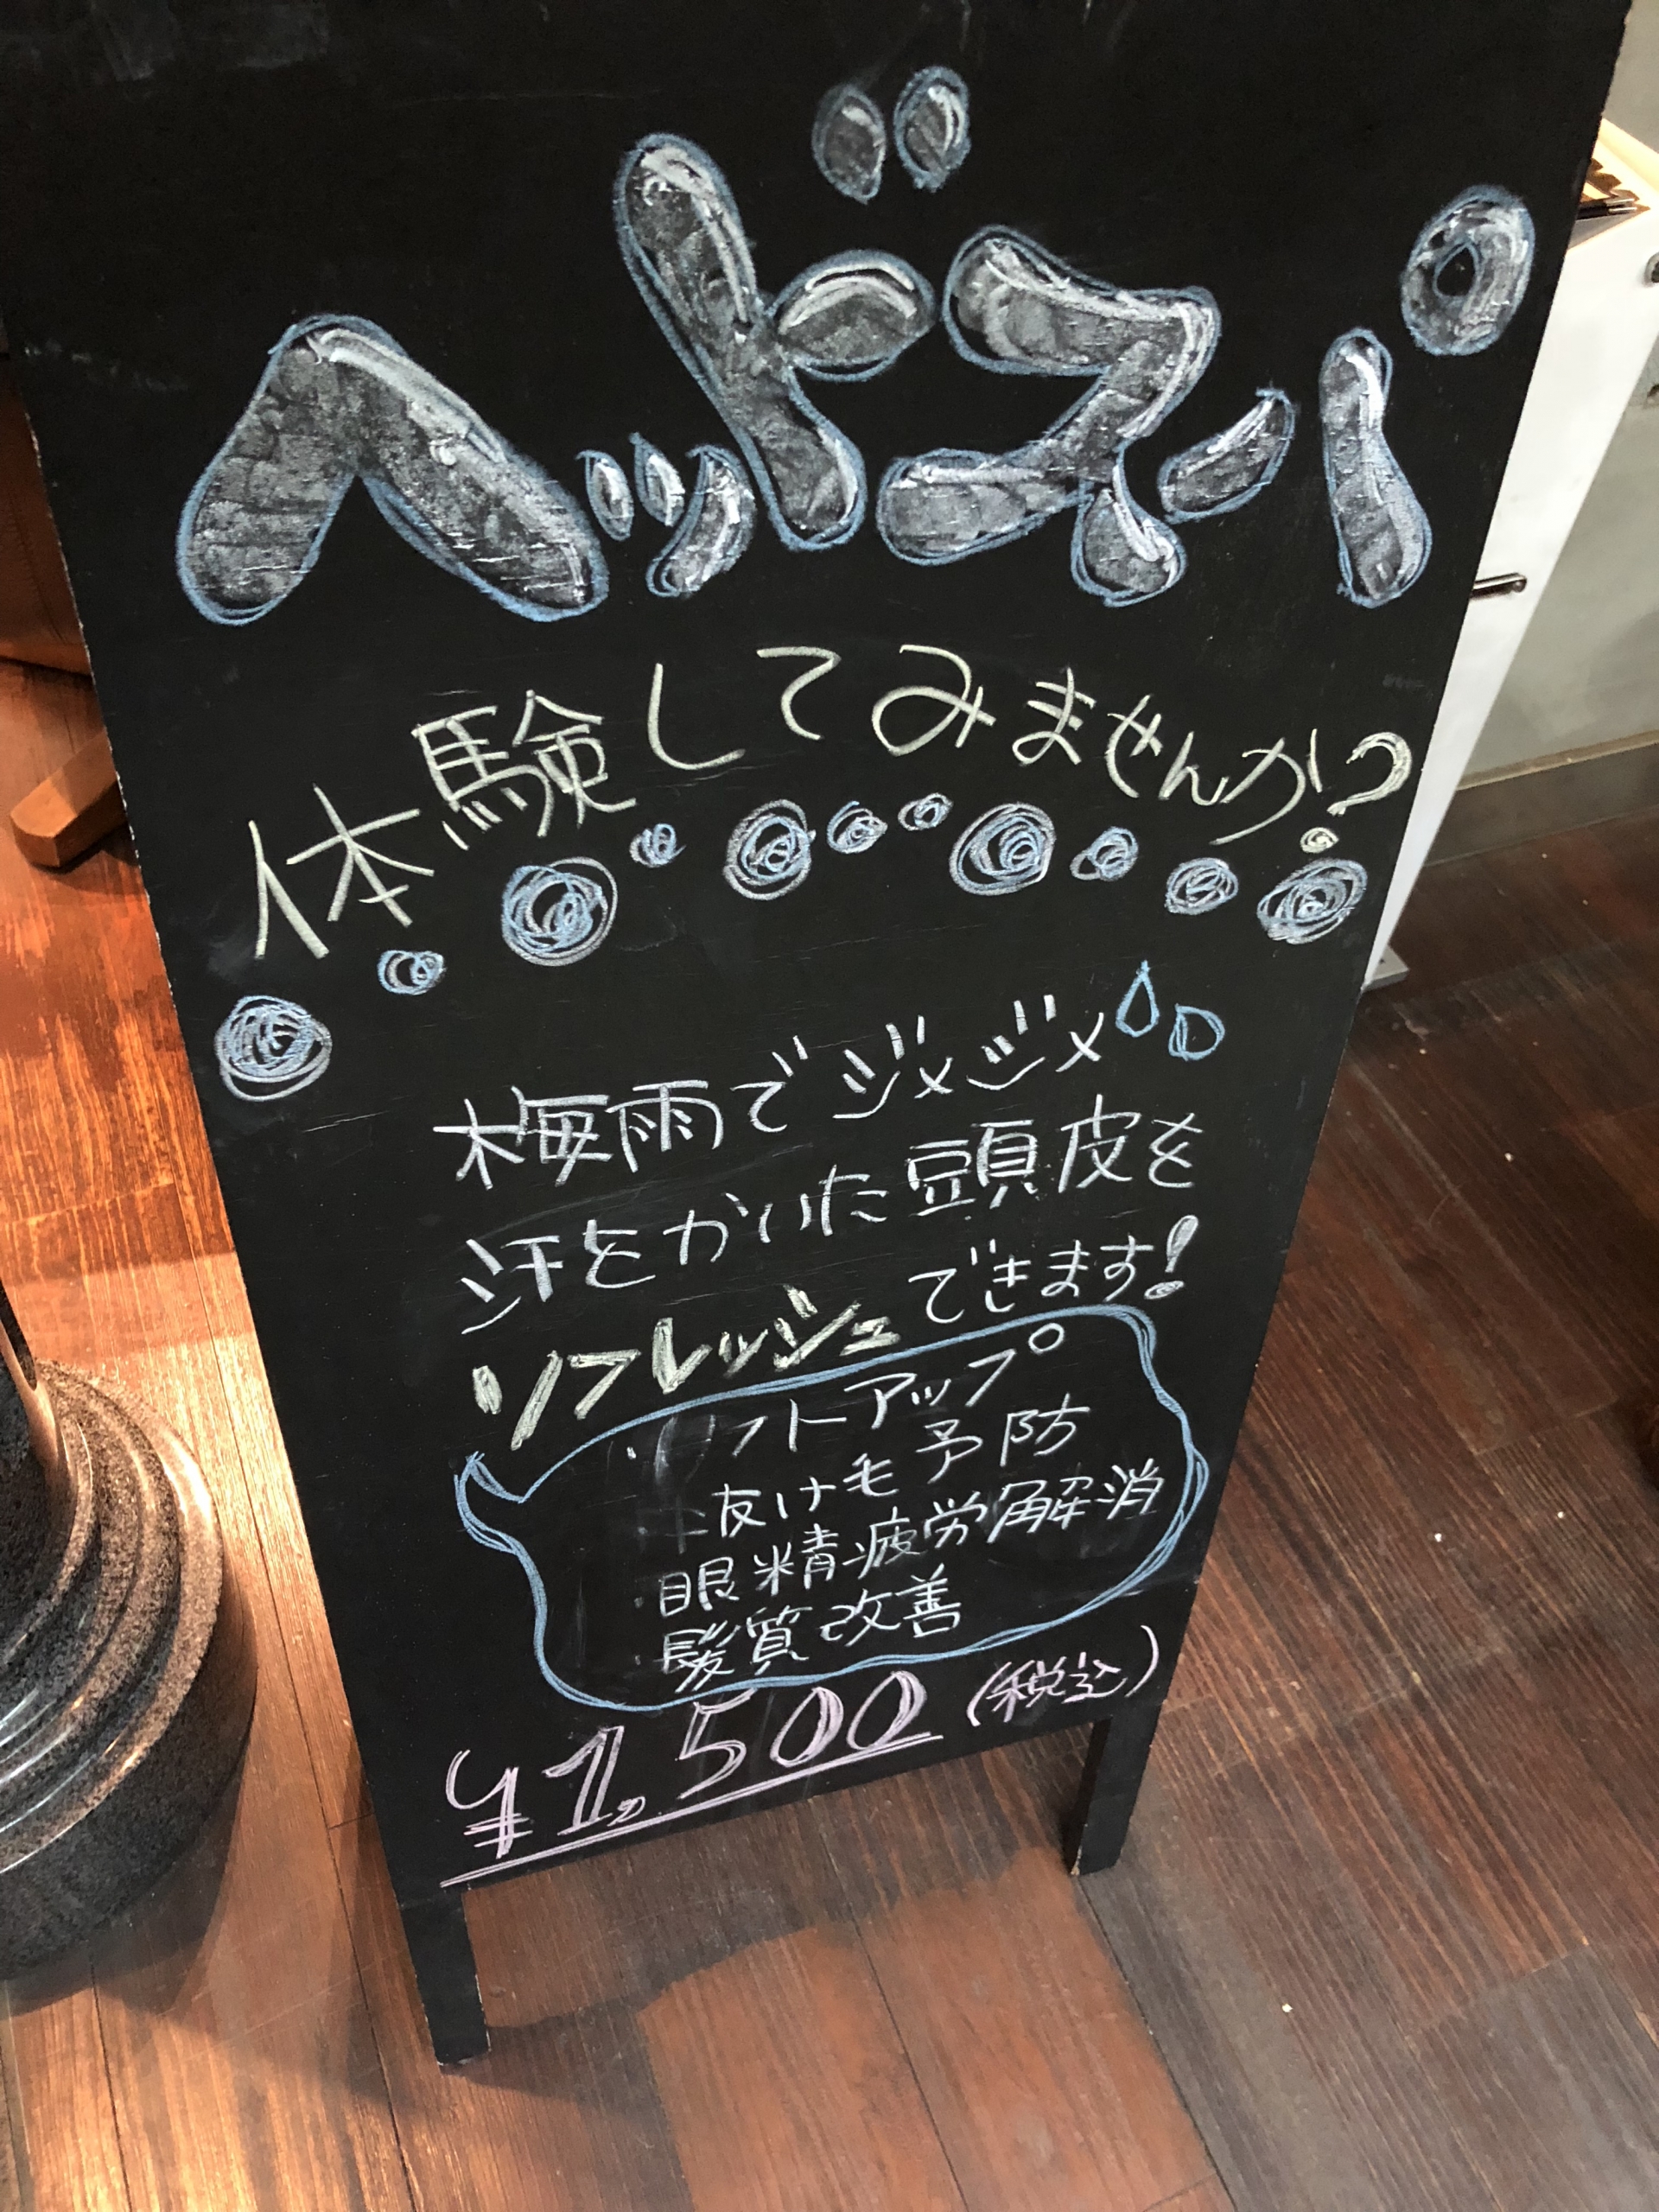 ヘッドスパ
体験してみませんか?
梅雨でジメジメ
汗をかいた頭皮を
リフレッシュできます!
・リフトアップ
・抜け毛予防
・眼精疲労解消
・髪質改善
¥1,500(税込)